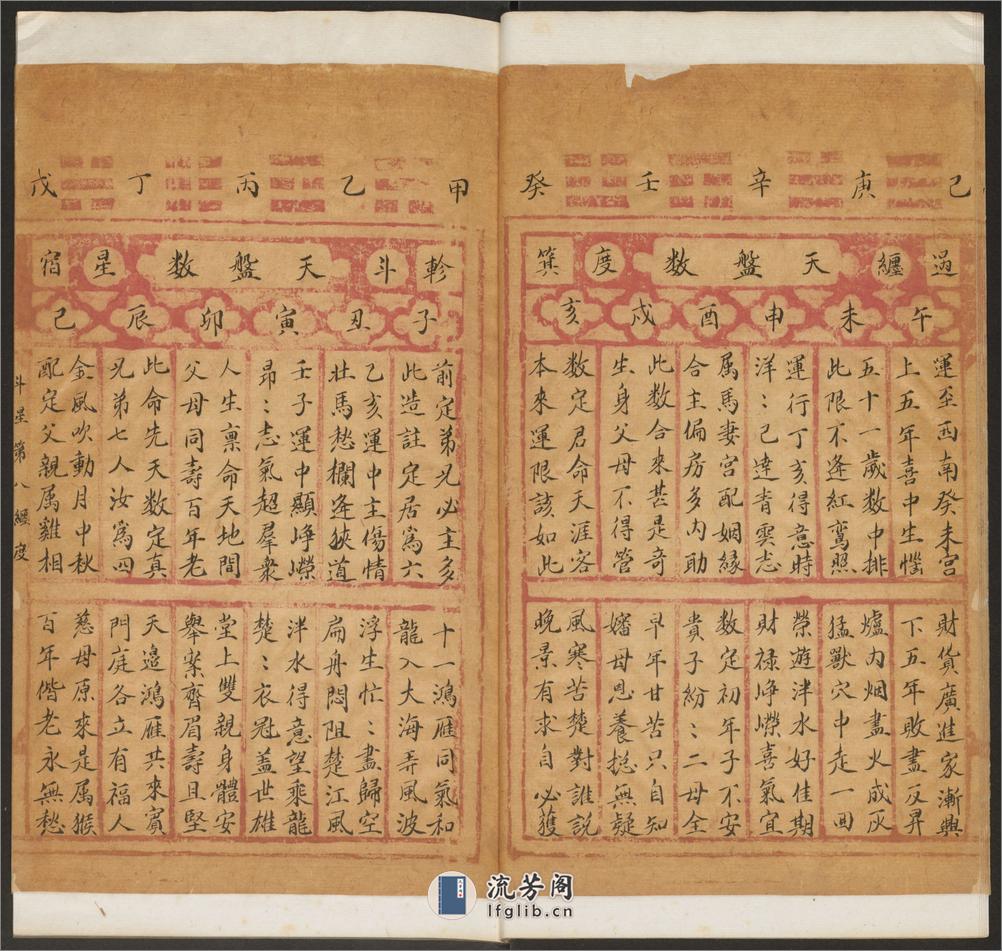 己庚辛壬癸
過纏天盤數度箕
午未申酉戌亥
運至西南癸未宮
上五年喜中生惱
五十一歲數中排
此限不逢紅鸞照
運行丁亥得意時
洋:已達青雲志
属馬妻宮配姻緣
合主偏房多內助
此數合來甚是奇
生身父母不得管
數定君命天涯客
本來運限該如此
財貨廣進家漸興
下五年敗盡反昇
爐內烟盡火成灰
猛獸穴中走一回
榮遊泮水好佳期
財禄崢嶸喜氣宜
數定初年子不安
貴子紛:二母全
早年甘苦只自知
嬸母恩養捴無疑
風寒苦楚對誰說
晚景有求自必獲
甲乙丙丁戊
軫斗天盤數星宿
子丑寅卯辰巳
前定弟兄必主多
此造註定居爲六
乙亥運中主傷情
壮馬愁欄逢狹道
壬子運中顯崢嶸
昂:志氣超羣衆
人生禀命天地間
父母同壽百年老
此命先天數定真
兄弟七人汝爲四
金風吹動月中秋
配定父親属雞相
十一鴻雁同氣和
龍入大海弄風波
浮生忙:盡歸空
扁舟悶阻楚江風
泮水得意望乘龍
楚:衣冠蓋世雄
堂上雙親身體安
舉案齊眉壽且堅
天邉鴻雁共來賓
門庭各立有福人
慈母原來是属猴
百年偕老永無愁
斗星第八纏度
流芳阁
lfglib.cn